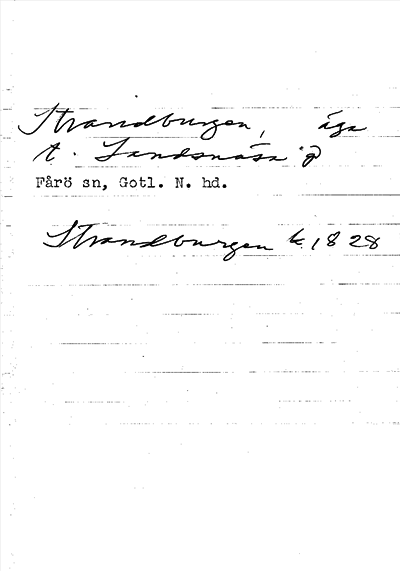 Strandburgen, äga
t. Landsnäsa g
Fårö sn, Gotl. N. hd.
Strandburgen k. 1828